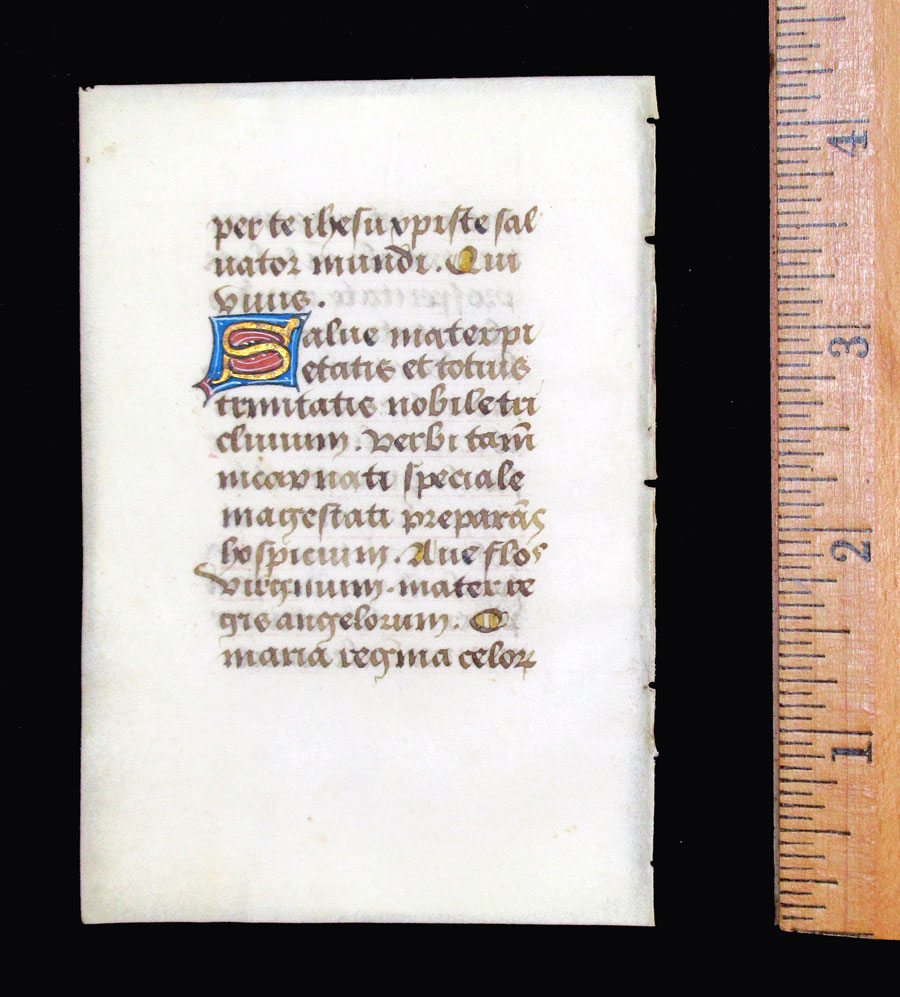 per te ihesu xpiste sal
uator mundi. Qui
viuis.
Salue mater pi
etatis et totius
trinitatis nobile tri
clinium. Verbi tam̄
incarnati speciale
magestati preparās
hospicium. Aue flos
virginum. mater re
gis angelorum. O
maria regina celoꝝ
4
3
2
1